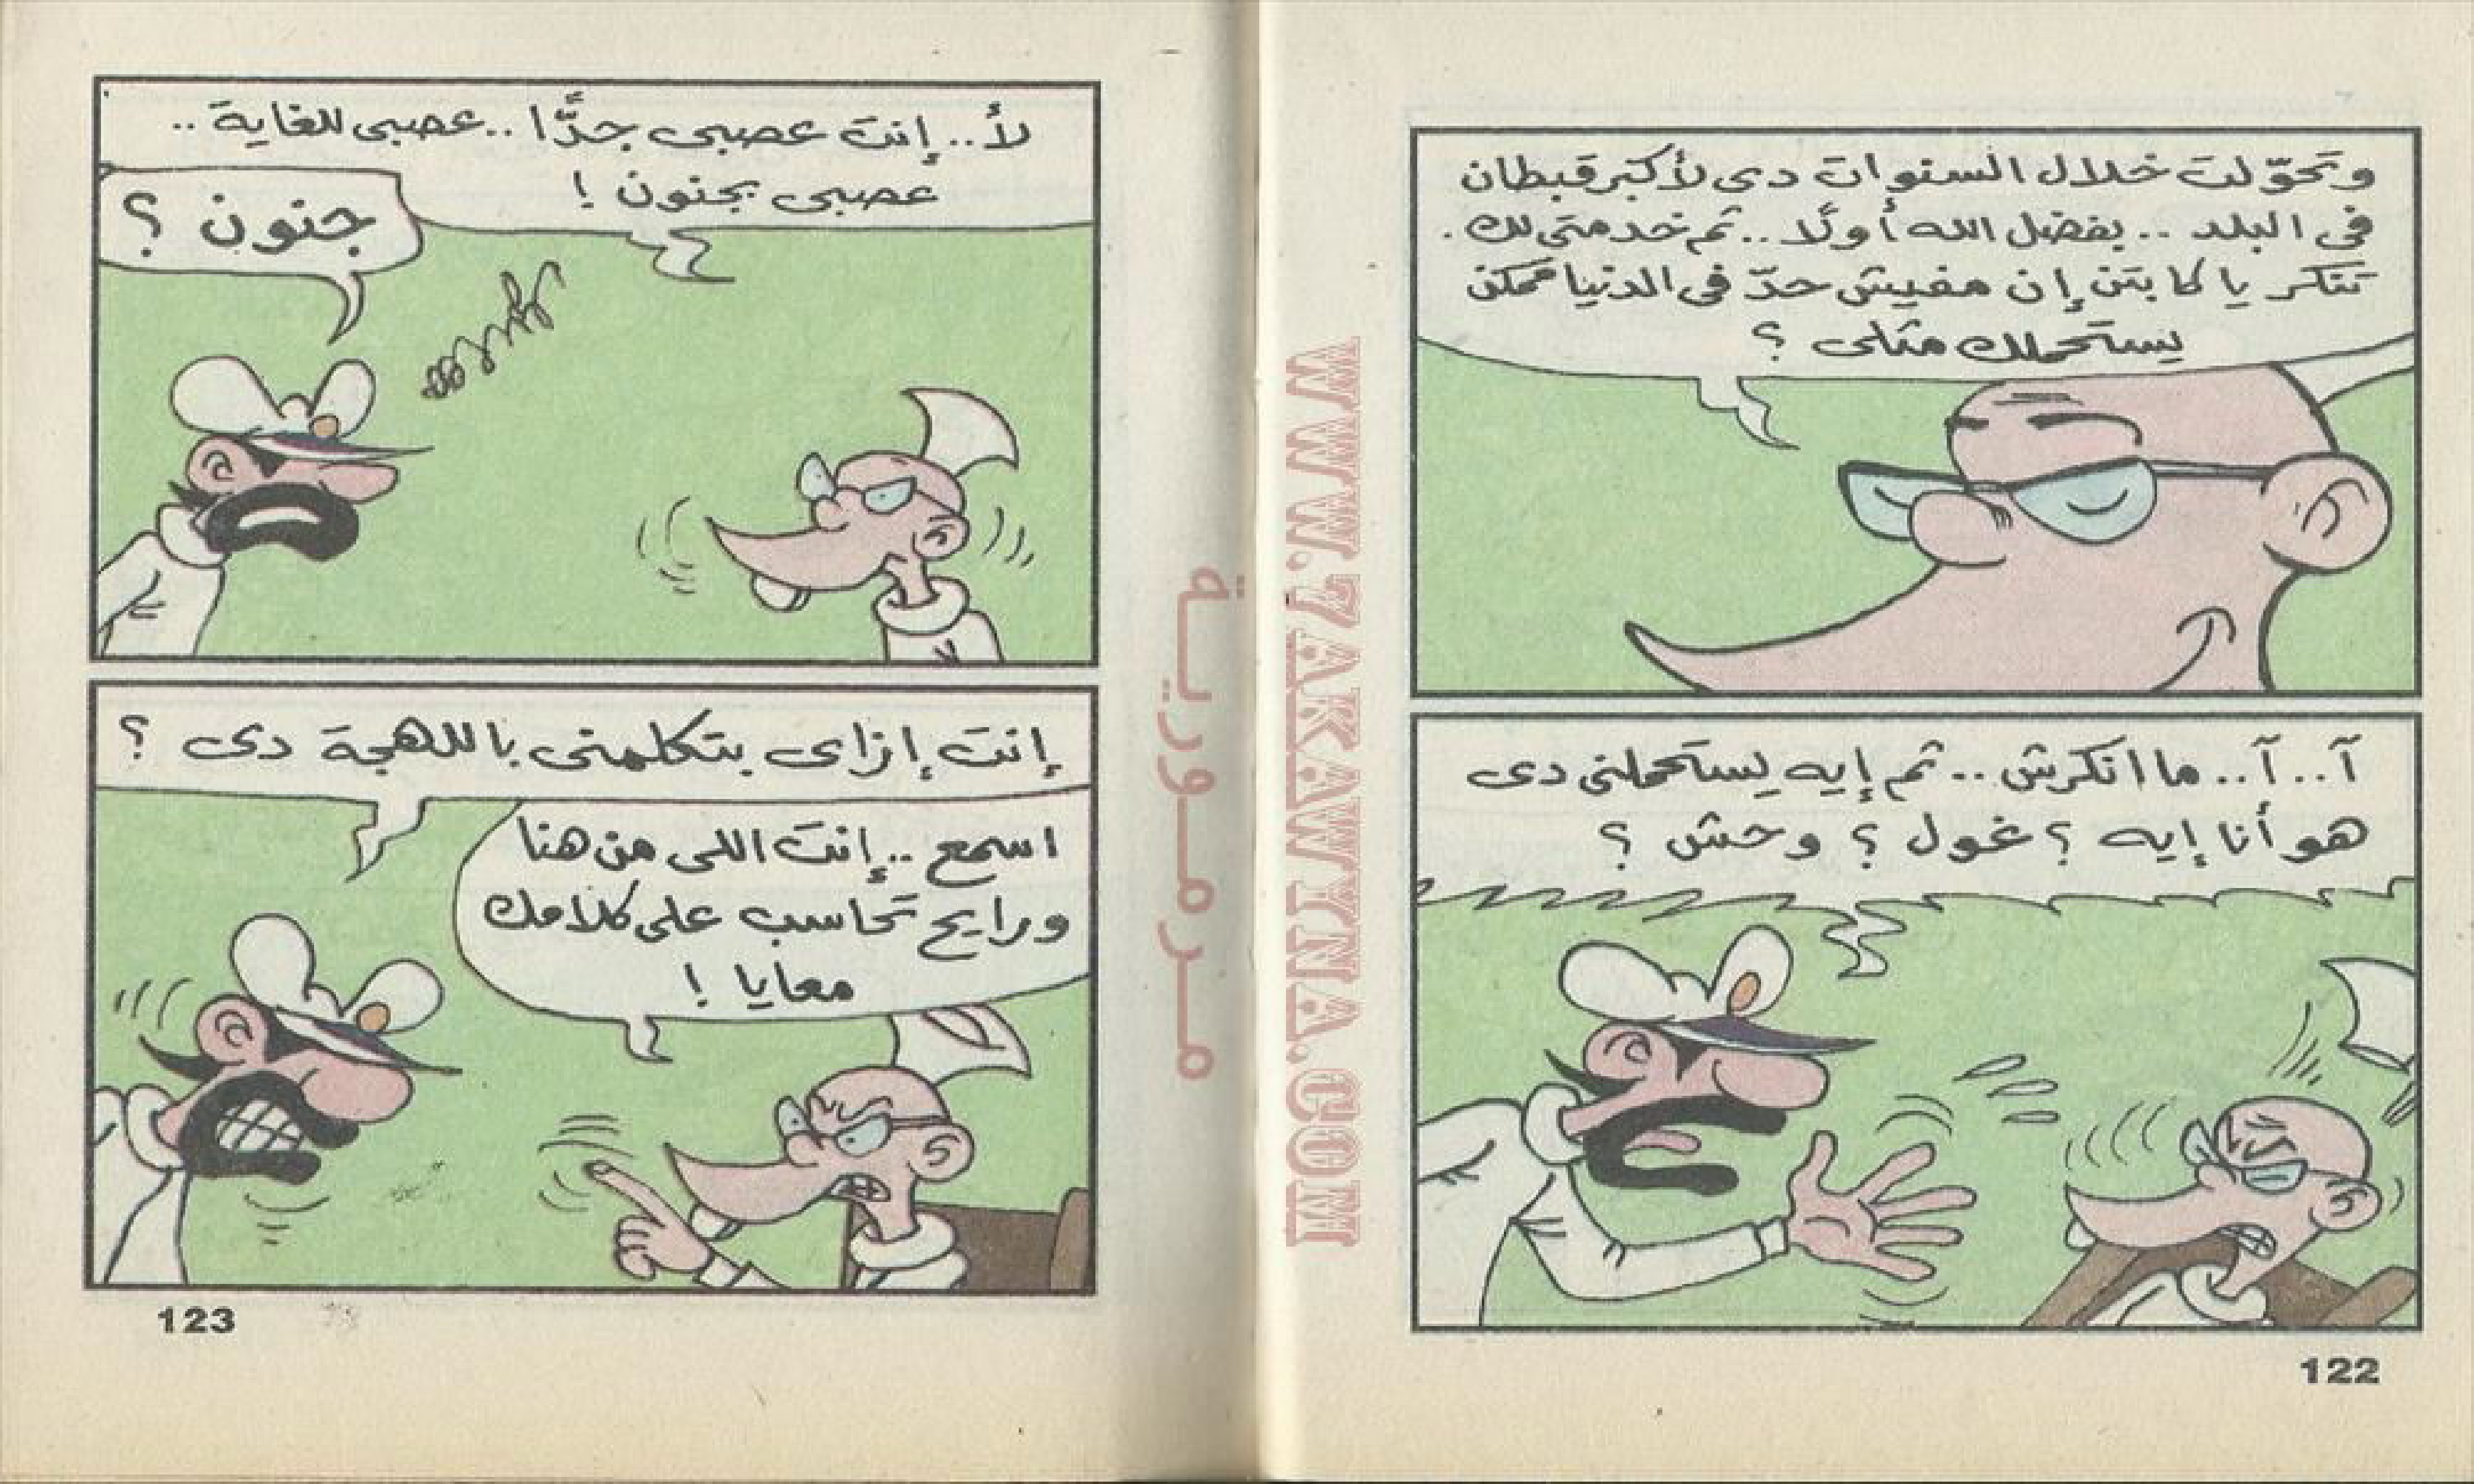 وتحوّلت خلال السنوات دى لأكبر قبطان
فى البلد .. بفضل الله أولًا .. ثم خدمتى لك .
تنكر يا كابتن إن مفيش حدّ فى الدنيا ممكن
يستحملك مثلى ؟
آ .. آ .. ما انكرش .. ثم إيه يستحملنى دى
هو أنا إيه ؟ غول ؟ وحش ؟
122
WWW.7AKAWYNA.COM
مرمورية
لأ .. إنت عصبى جدًّا .. عصبى للغاية ..
عصبى بجنون !
جنون ؟
إنت إزاى بتكلمنى باللهجة دى ؟
اسمع .. إنت اللى من هنا
ورايح تحاسب على كلامك
معايا !
123